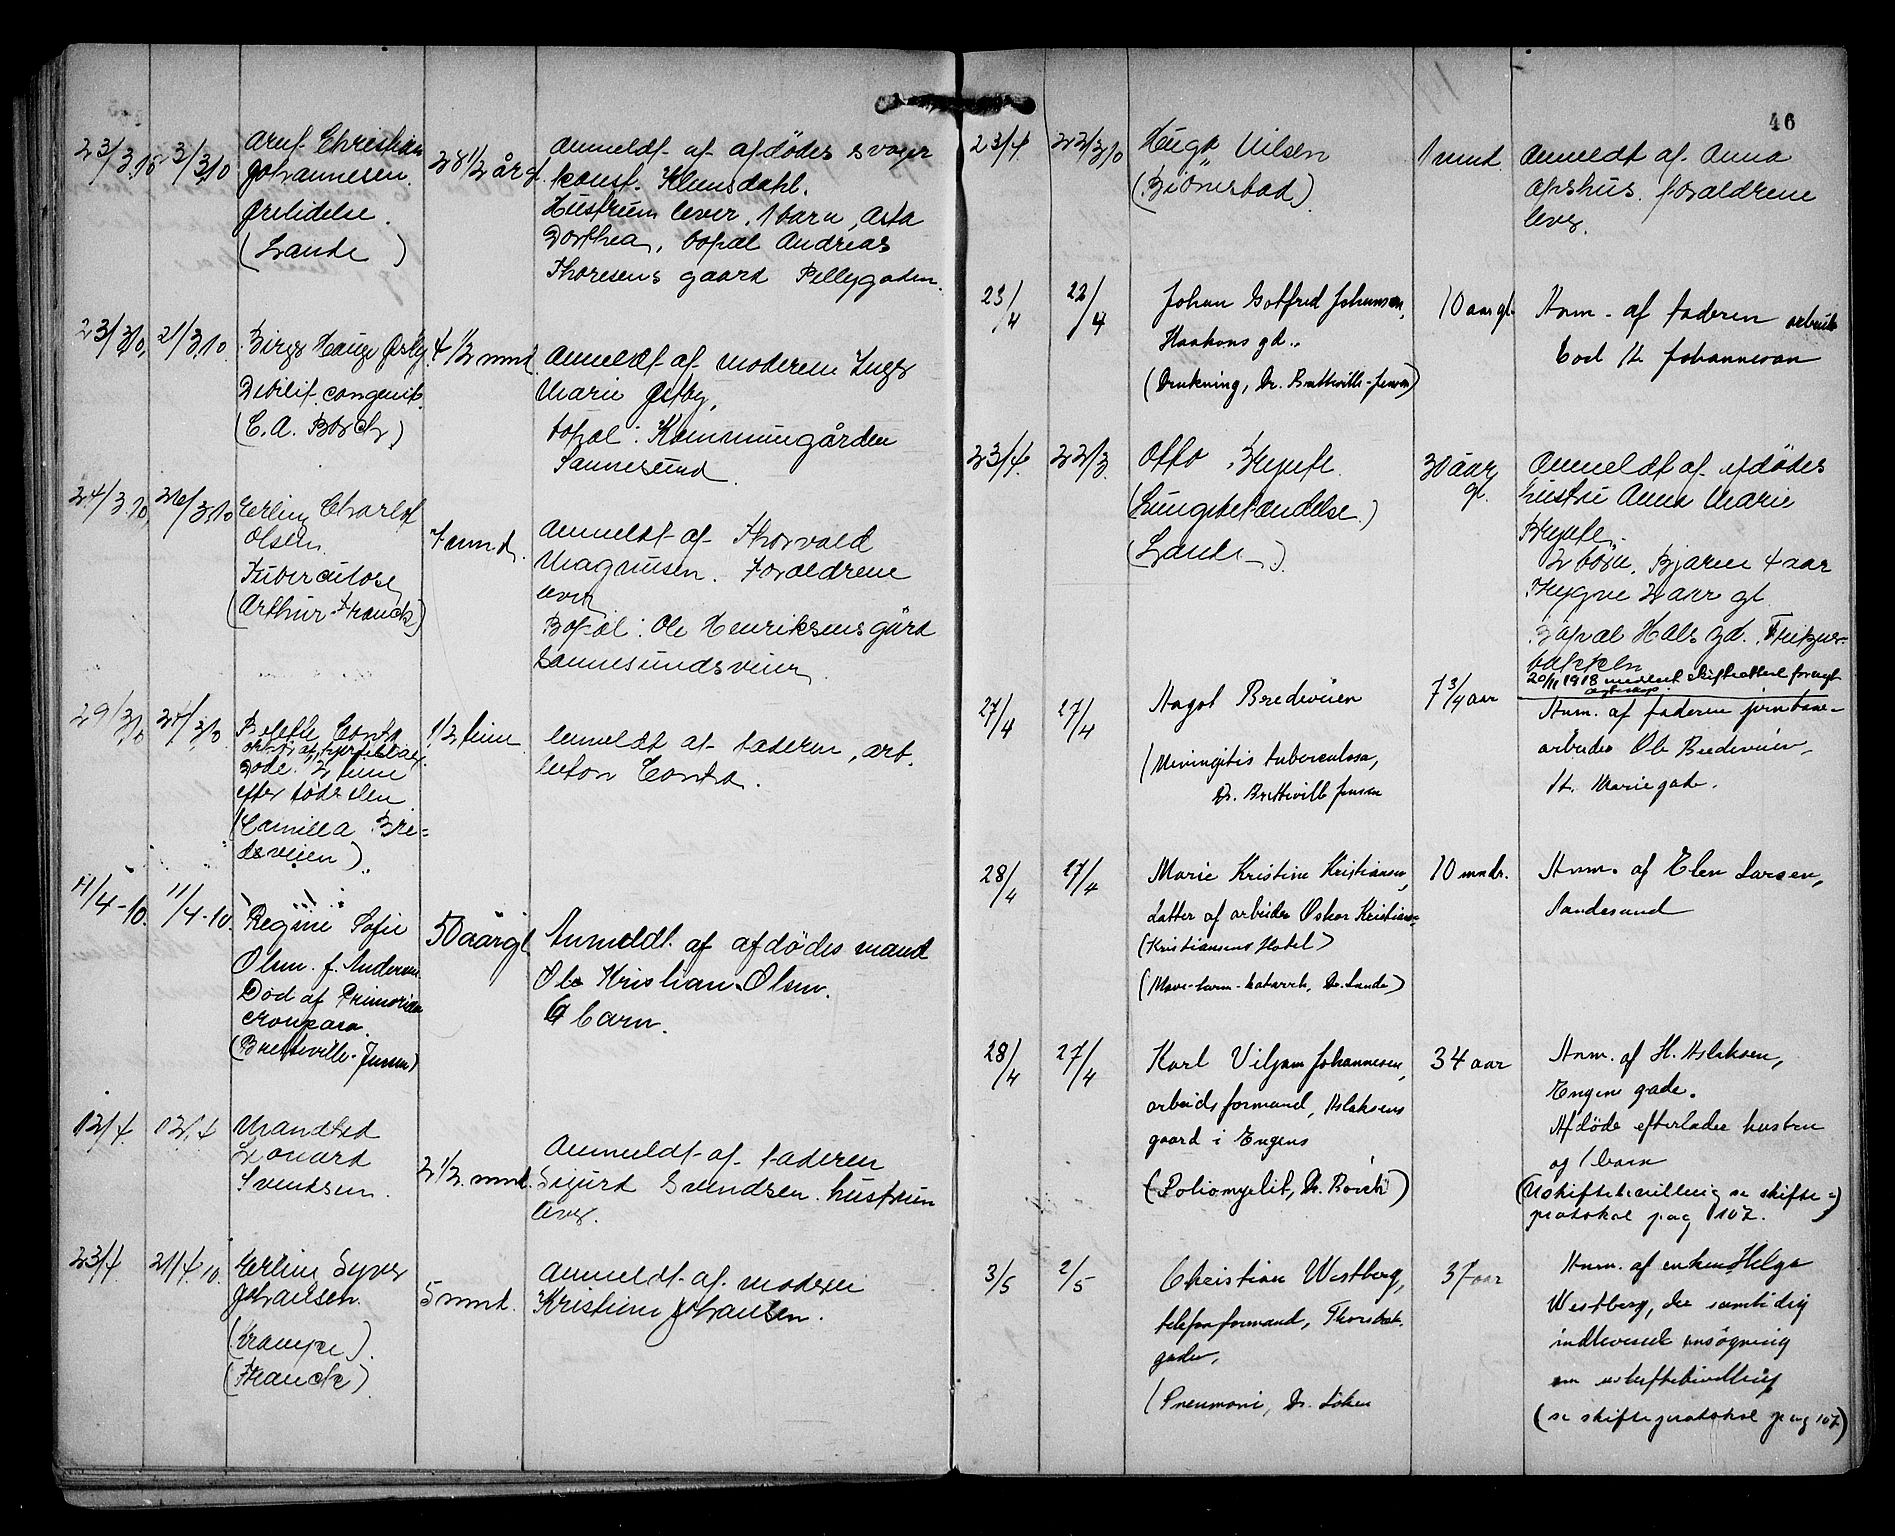 23/3.10 3/3.10 Arnt Christian
Johannesen. 28 1/2 år gl.
(Lande)
Anmeldt af afdødes svoger
konst. Klemsdahl.
Hustruen lever, 1 barn, Asta
Dorthea, bopæl Andreas
Thoresens gaard Pellygaden.
23/3.10. 21/3.10 Birger Hauge Østby. 4 1/2 mnd.
Debilit. congenit.
(C. A. Borch)
Anmeldt af moderen Inger
Marie Østby,
bopæl: Kommungården
Sannesund.
24/3.10. 26/3.10 Erling Charlot
Olsen. 7 mnd.
Tuberculose
(Arthur Franck)
Anmeldt af Thorvald
Magnusen. Forældrene
lever
Bopæl: Ole Henriksens gård
Sannesundsveien
29/3.10 Bolette
Døde 1/2 time
efter fødselen
(Camilla Bre=
deveien).
1/2 time
Anmeldt af faderen, arb.
11/4-10. 11/4-10. Regine Sofie 50 aar gl
Olsen f. Andersen
Død af
(Bretteville-Jensen)
Anmeldt af afdødes mand
Ole Kristian Olsen.
6 barn.
12/4. 12/4 Mandted
Leonard
Svendsen. 2 1/2 mnd.
Anmeldt af faderen
Sigurd Svendsen. hustruen
lever.
23/4. 21/4.10. Erling Syver
Johansen. 5 mnd.
(Krampe).
(Franck)
Anmeldt af moderen
Kristiane Johansen.
46
23/4. 22/3.10 Hugo Nilsen 1 mnd.
(Bjørnstad)
Anmeldt af Anna
Apshus. forældrene
lever.
23/4 22/4 Johan Gotfred Johansen, 10 aar gl.
Haakons gd..
(Drukning, Dr. Bretteville-Jensen)
Anm. af faderen arbeid.
Johannesen
23/4. 22/3. Otto 30 aar
gl.
(Lungebetændelse.)
(Lande)
Anmeldt af afdødes
hustru Anna Marie
2 børn, Bjarne 4 aar
Trygve 2 aar gl
Bopæl Hals gd. Fritzner-
bakken
27/4 27/4 Aagot Bredeveien 7 3/4 aar
(Meningitis tuberculosa,
Dr. Bretteville Jensen
Anm. af faderen jernbane-
arbeider Ole Bredeveien,
St. Mariegade.
28/4 27/4 Marie Kristine Kristiansen, 10 mndr.
datter af arbeider Oskar Kristian-
(Kristiansens Hotel)
(Mave-tarm-katarrh, Dr. Lande)
Anm. af Elen Larsen,
Sandesund
28/4 27/4 Karl Viljam Johannesen, 34 aar
arbeidsformand, Aslaksens
gaard i Engens
(Poliomyelit, Dr. Borch)
Anm. af H. Aslaksen,
Engens gade.
Afdøde efterlader hustru
og 1 barn
(Uskiftebevilling se skifte=
protokol pag 107.)
3/5 2/5 Christian Westberg, 37 aar
telefonformand, Thorsbæk-
gaden,
(Pneumoni, Dr. Löken
Anm. af enken Helga
Westberg, der samtidig
indleverede ansøgning
om uskiftebevilling
(se skifteprotokol pag 107)